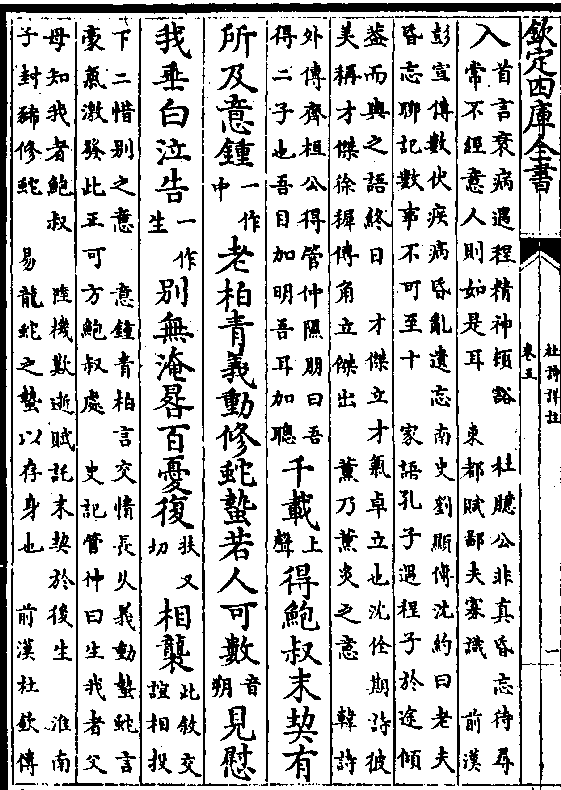 欽定四庫全書
杜詩詳註
卷五
入
首言衰病遇程精神頓豁 杜臆公非真昏忘待尋
常不經意人則如是耳 東都賦鄙夫寡識 前漢
彭宣傳數伏疾病昏亂遺忘 南史劉顯傳沈約曰老夫
昏忘聊記數事不可至十 家語孔子遇程子於途傾
葢而與之語終日 才傑立才氣卓立也沈佺期詩彼
美稱才傑徐穉傳角立傑出 薰乃薰炙之意 韓詩
外傳齊桓公得管仲隰朋曰吾
得二子也吾目加明吾耳加聰
千載上聲得鮑叔末契有
所及意鍾一作中老柏青義動修蛇蟄若人可數音朔見慰
我垂白泣告一作生別無淹晷百憂復扶又切相襲此敘交誼相投
下二惜別之意 意鍾青柏言交情長久義動蟄蛇言
豪氣激發此正可方鮑叔處 史記管仲曰生我者父
母知我者鮑叔 陸機歎逝賦託末契於後生 淮南
子封豨修蛇 易龍蛇之蟄以存身也 前漢杜欽傳